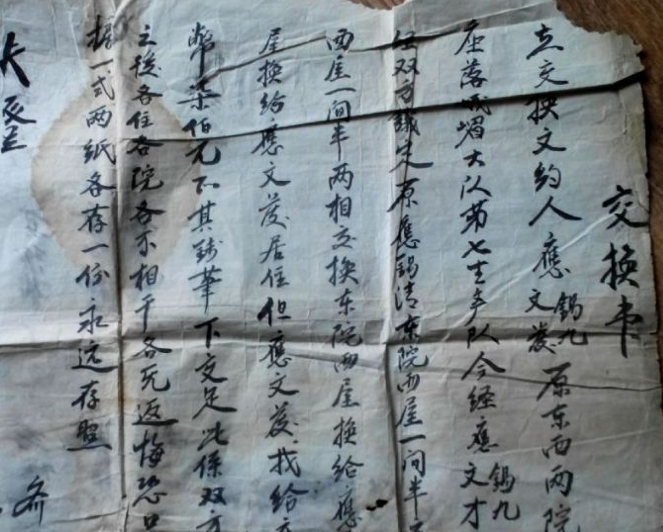 交换书
立交换文约人應锡九文发原东西两院
座落峨嵋大队第七生产队今经應锡九文才
经双方议定原應锡清东院西屋一间半
西屋一间半两相交换东院西屋换给應
屋换给應文发居住但應文发找给
幣柒佰元正其钱筆下交足此係双方
之後各住各院各不相干各无返悔恐口
据一式两纸各存一份永远存照